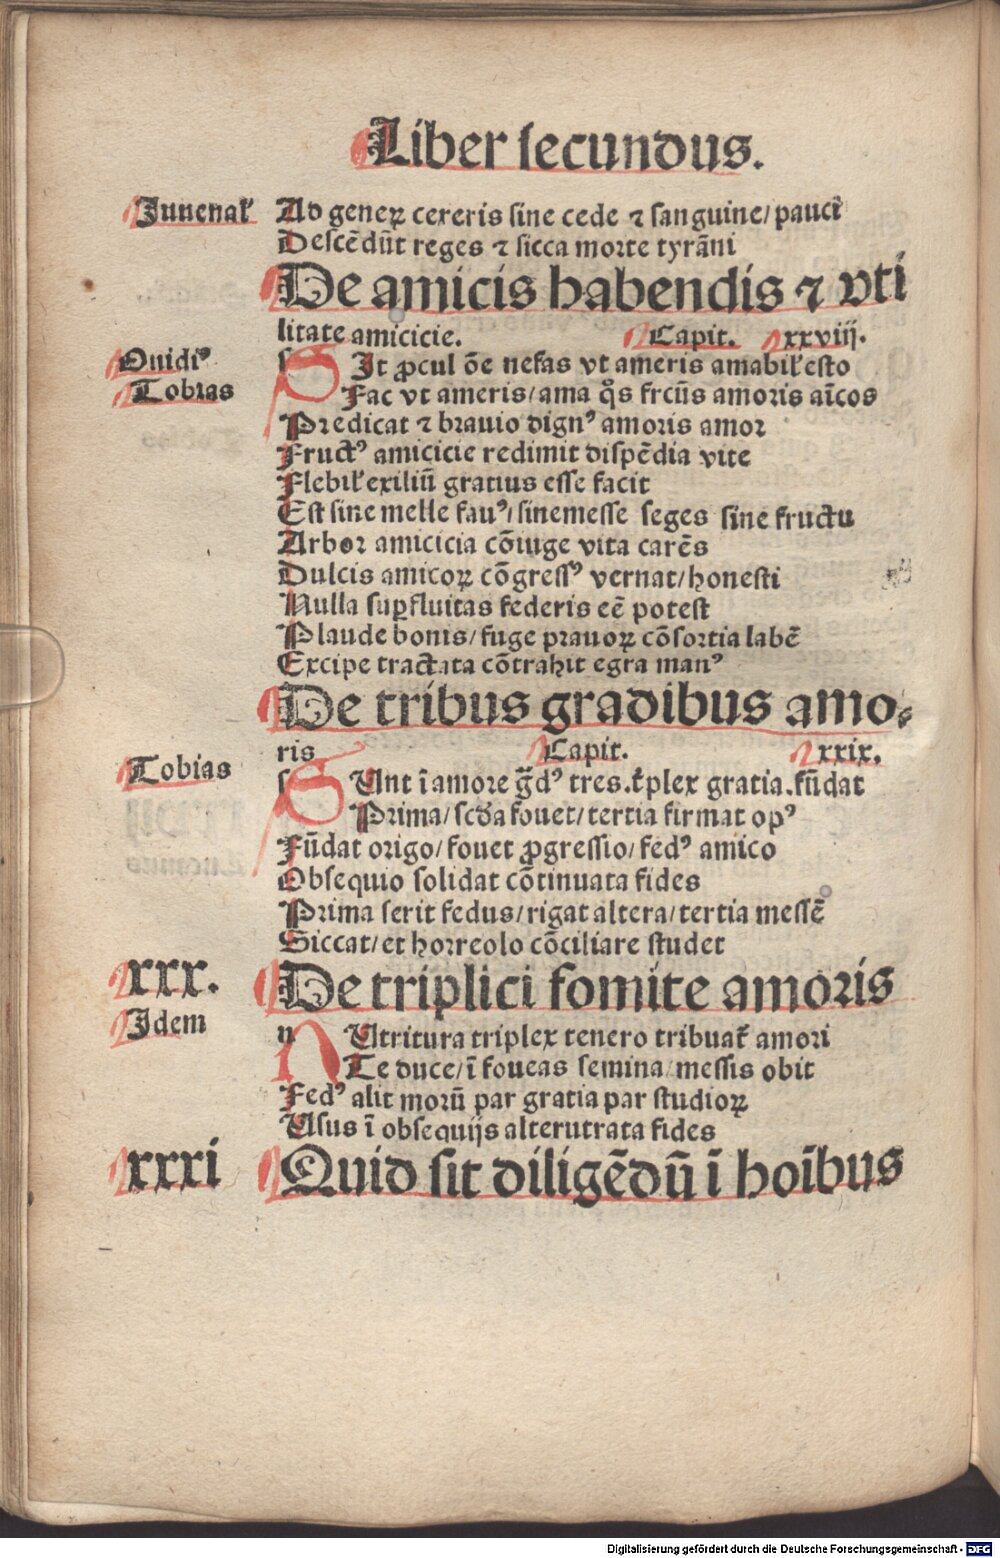 Liber secundus.
Juuenal̉ Ad geneꝝ cereris sine cede ⁊ sanguine/ pauci
Descēdūt reges ⁊ sicca morte tyrāni
De amicis habendis ⁊ vti
litate amicicie. Capit. xxviij.
Ouidiꝰ s SIt ꝓcul ōe nefas vt ameris amabil̉ esto
Tobias Fac vt ameris/ ama q̊s frcūs amoris aīcos
Predicat ⁊ brauio dignꝰ amoris amor
Fructꝰ amicicie redimit dispēdia vite
Flebil̉ exiliū gratius esse facit
Est sine melle fauꝰ/ sinemesse seges sine fructu
Arbor amicicia cōiuge vita carēs
Dulcis amicoꝝ cōgressꝰ vernat/ honesti
Nulla suꝑfluitas federis eē potest
Plaude bonis/ fuge prauoꝝ cōsortia labē
Excipe tractata cōtrahit egra manꝰ
De tribus gradibus amo⸗
ris Capit. xxix.
Tobias s SVnt ī amore g̃dꝰ tres. t̉plex gratia. fūdat
Prima/ scd̄a fouet/ tertia firmat opꝰ
Fūdat origo/ fouet ꝓgressio/ fedꝰ amico
Obsequio solidat cōtinuata fides
Prima serit fedus/ rigat altera/ tertia messē
Siccat/ et horreolo cōciliare studet
xxx. De triplici fomite amoris
Idem n NVtritura triplex tenero tribuat̉ amori
Te duce/ ī foueas semina/ messis obit
Fedꝰ alit morū par gratia par studioꝝ
Vsus ī obsequijs alterutrata fides
xxxi Quid sit diligēdū ī hoībus
Digitalisierung gefördert durch die Deutsche Forschungsgemeinschaft - DFG